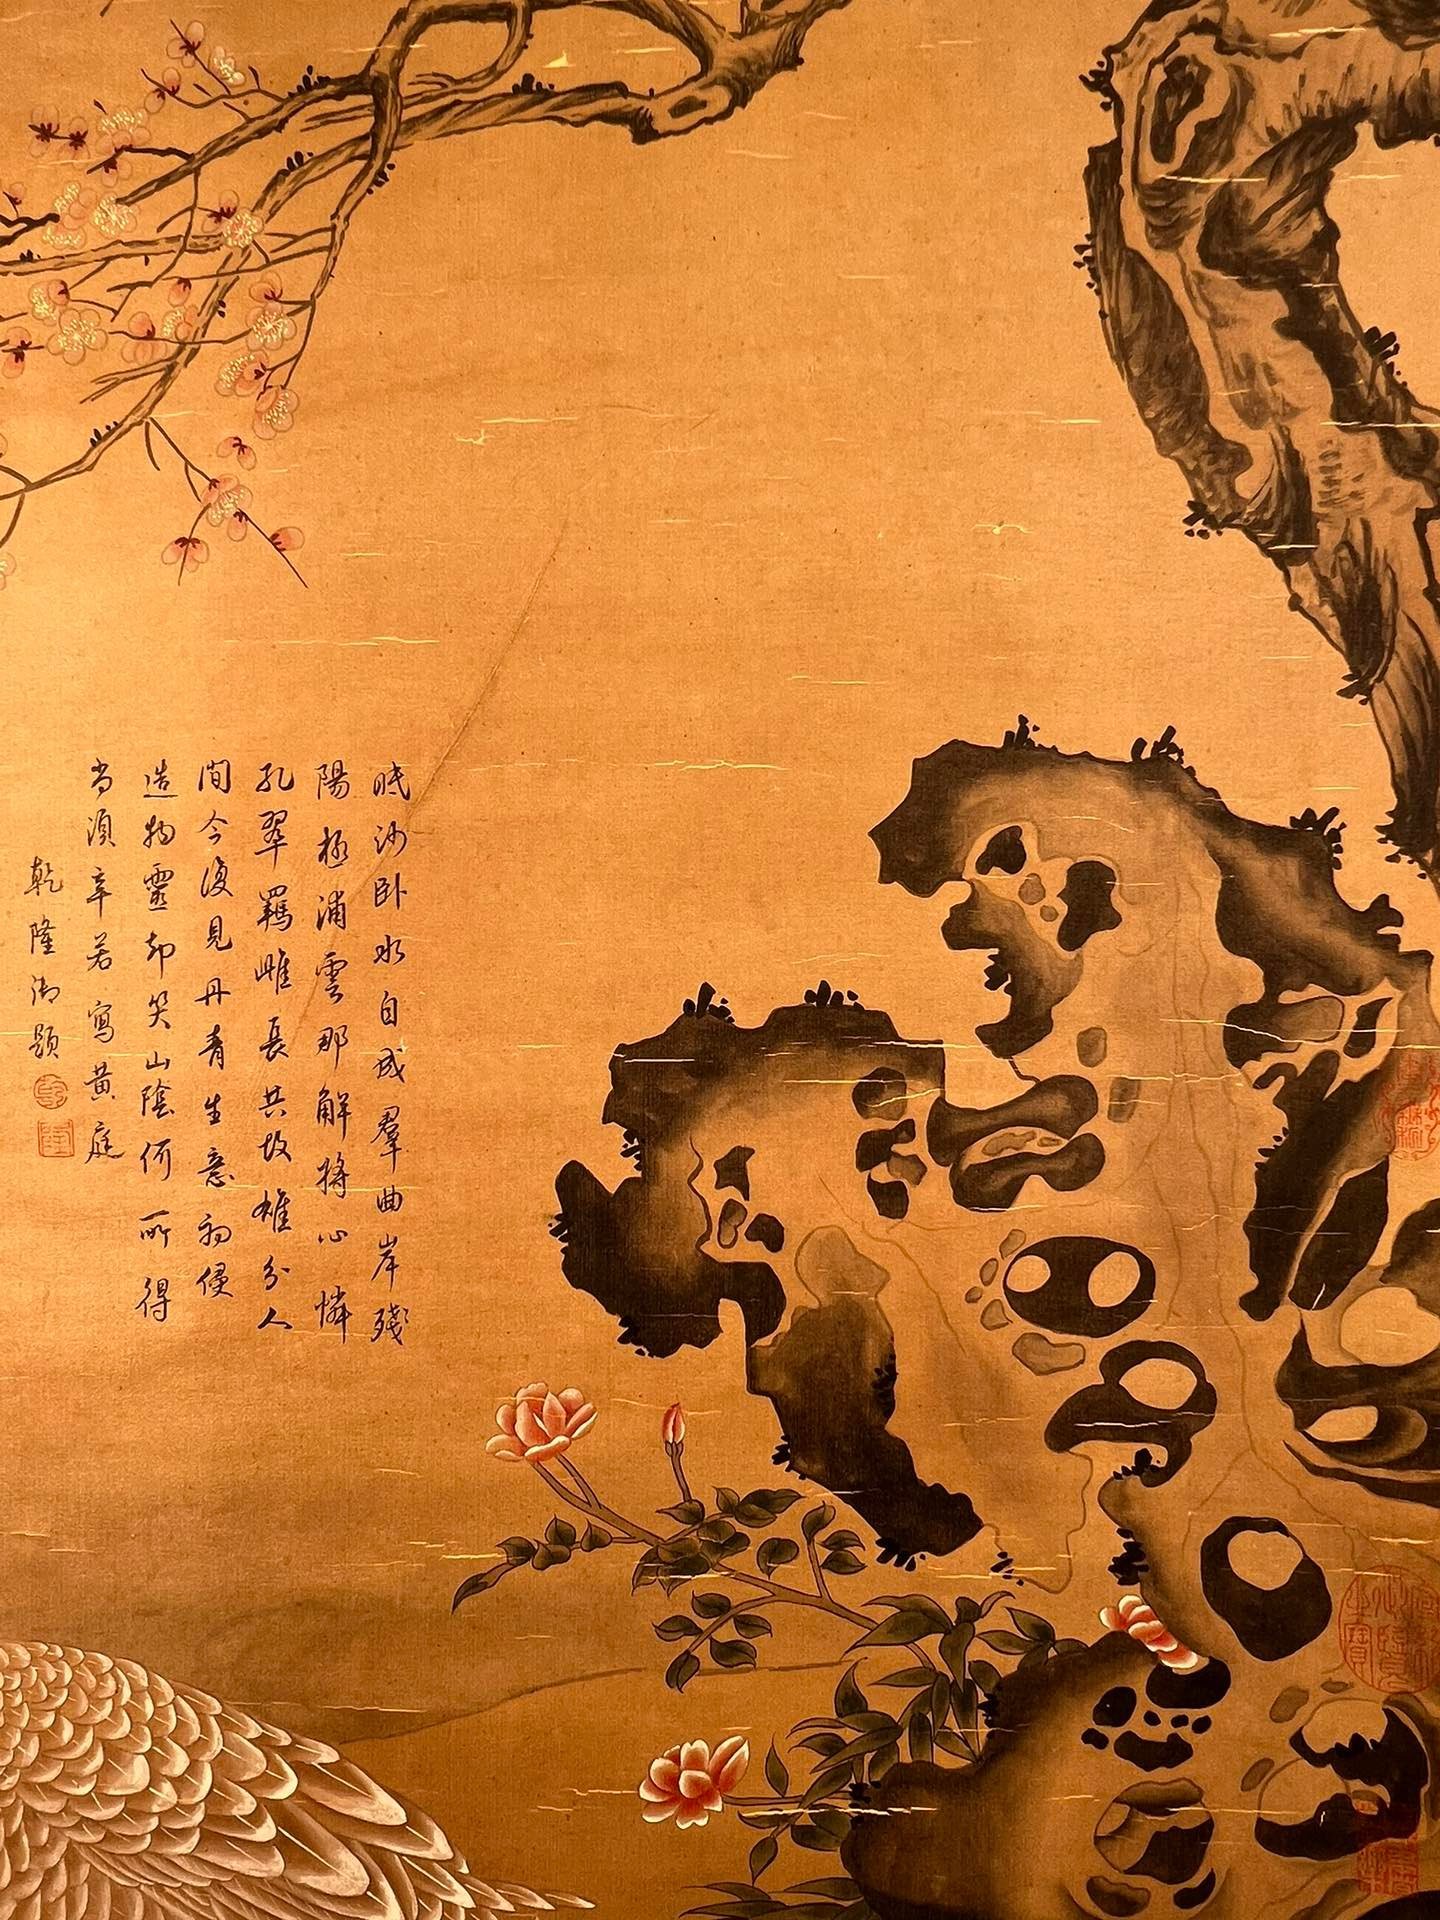 眠沙卧水自成羣曲岸殘
陽極浦雲那解將心憐
孔翠羈雌長共故雄分人
間今復見丹青生意初侵
造物靈却笑山陰何所得
尚須辛苦寫黃庭
乾隆御題